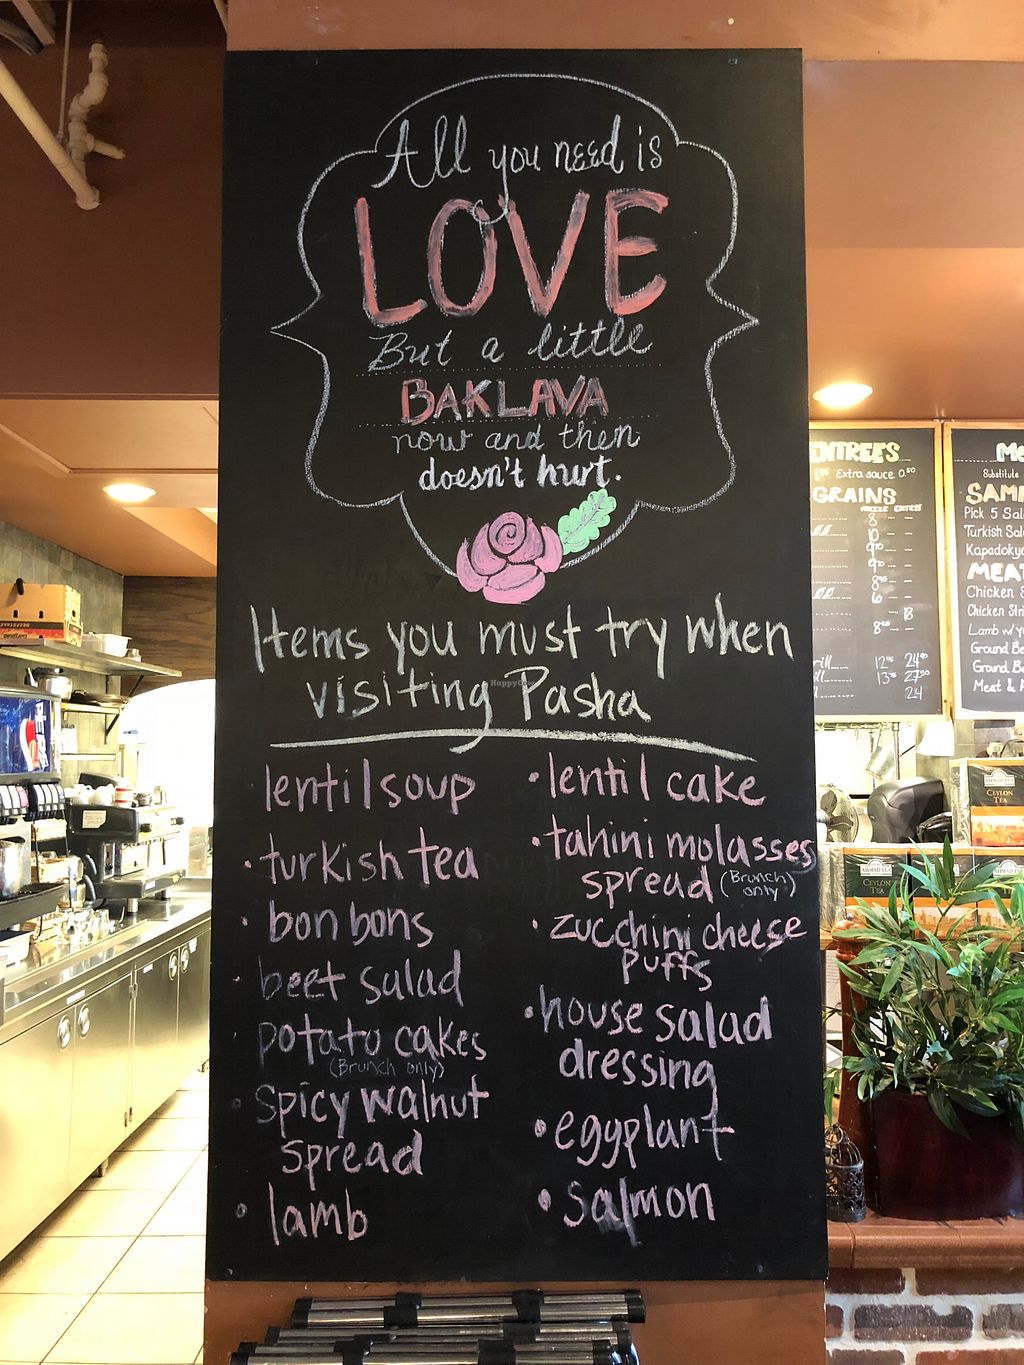 All you need is
LOVE
But a little
BAKLAVA
now and then
doesn't hurt.
Items you must try when
visiting Pasha
HappyCow
lentil soup
• turkish tea
• bon bons
• beet salad
potato cakes
(Brunch only)
• spicy walnut
spread
• lamb
• lentil cake
• tahini molasses
spread (Brunch only)
• zucchini cheese
puffs
• house salad
dressing
• eggplant
• salmon
ENTREES
Extra sauce 0.50
GRAINS
Substitute
Pick 5
Turkish
Kapadokya
MEAT
Chicken
Chicken
Lamb w/
Ground
Ground
Meat &
12.95 24.90
24
AHMAD TEA
CEYLON
TEA
CEYLON
TEA